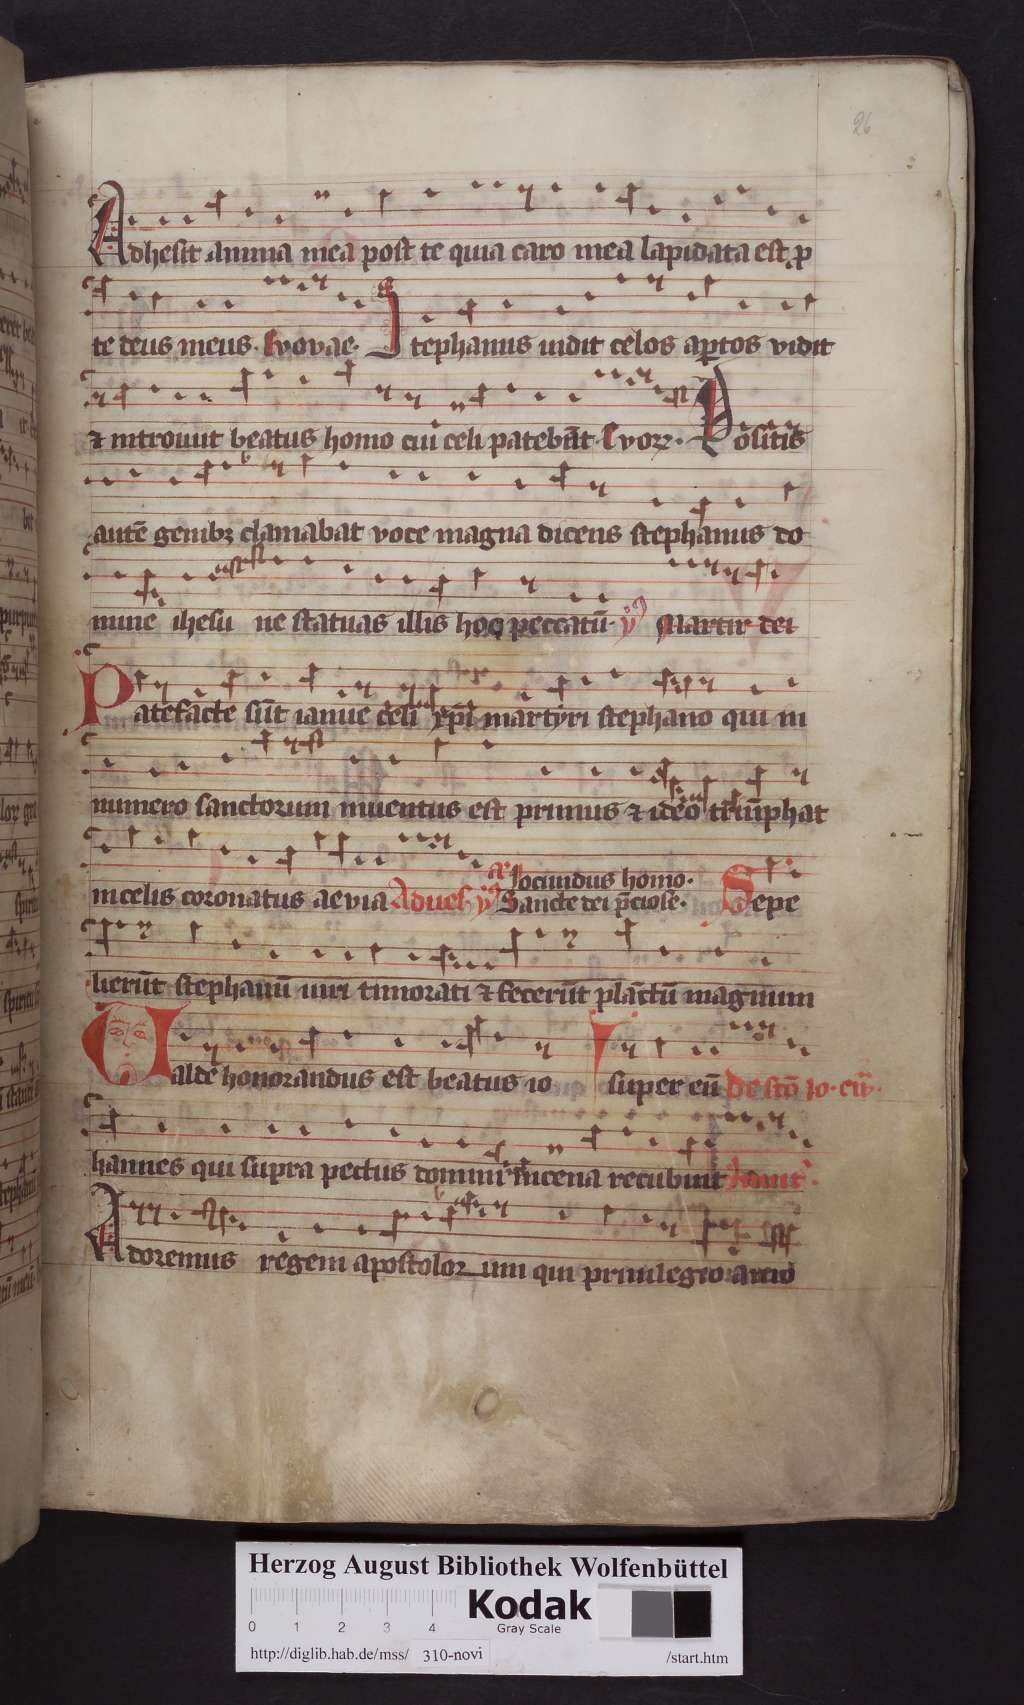 26
Adhesit anima mea post te quia caro mea lapidata est p̱
te deus meus. Evovae. Stephanus uidit celos aꝑtos vidit
⁊ introiuit beatus homo cui celi patebāt. Evoꝝ. Positis
autē genibꝫ clamabat voce magna dicens stephanus do
mine ihesu ne statuas illis hoc peccatū. ꝟ Martir dei
Patefacte sūt ianue celi xp̄i martyri stephano qui in
numero sanctorum inuentus est primus ⁊ ideo triūphat
in celis coronatus aevia Ad uesꝑ ꝟ Iocundus homo.
Sancte dei p̄ciose. Sepe
lierūt stephanū uiri timorati ⁊ fecerūt planctū magnum
Ualde honorandus est beatus io super eū De sctō Io. ew̄.
hannes qui supra pectus domini in cena recubuit Inuit.
Adoremus regem apostolorum qui priuilegio amo
Herzog August Bibliothek Wolfenbüttel
0 1 2 3 4
Kodak
Gray Scale
http://diglib.hab.de/mss/ 310-novi /start.htm